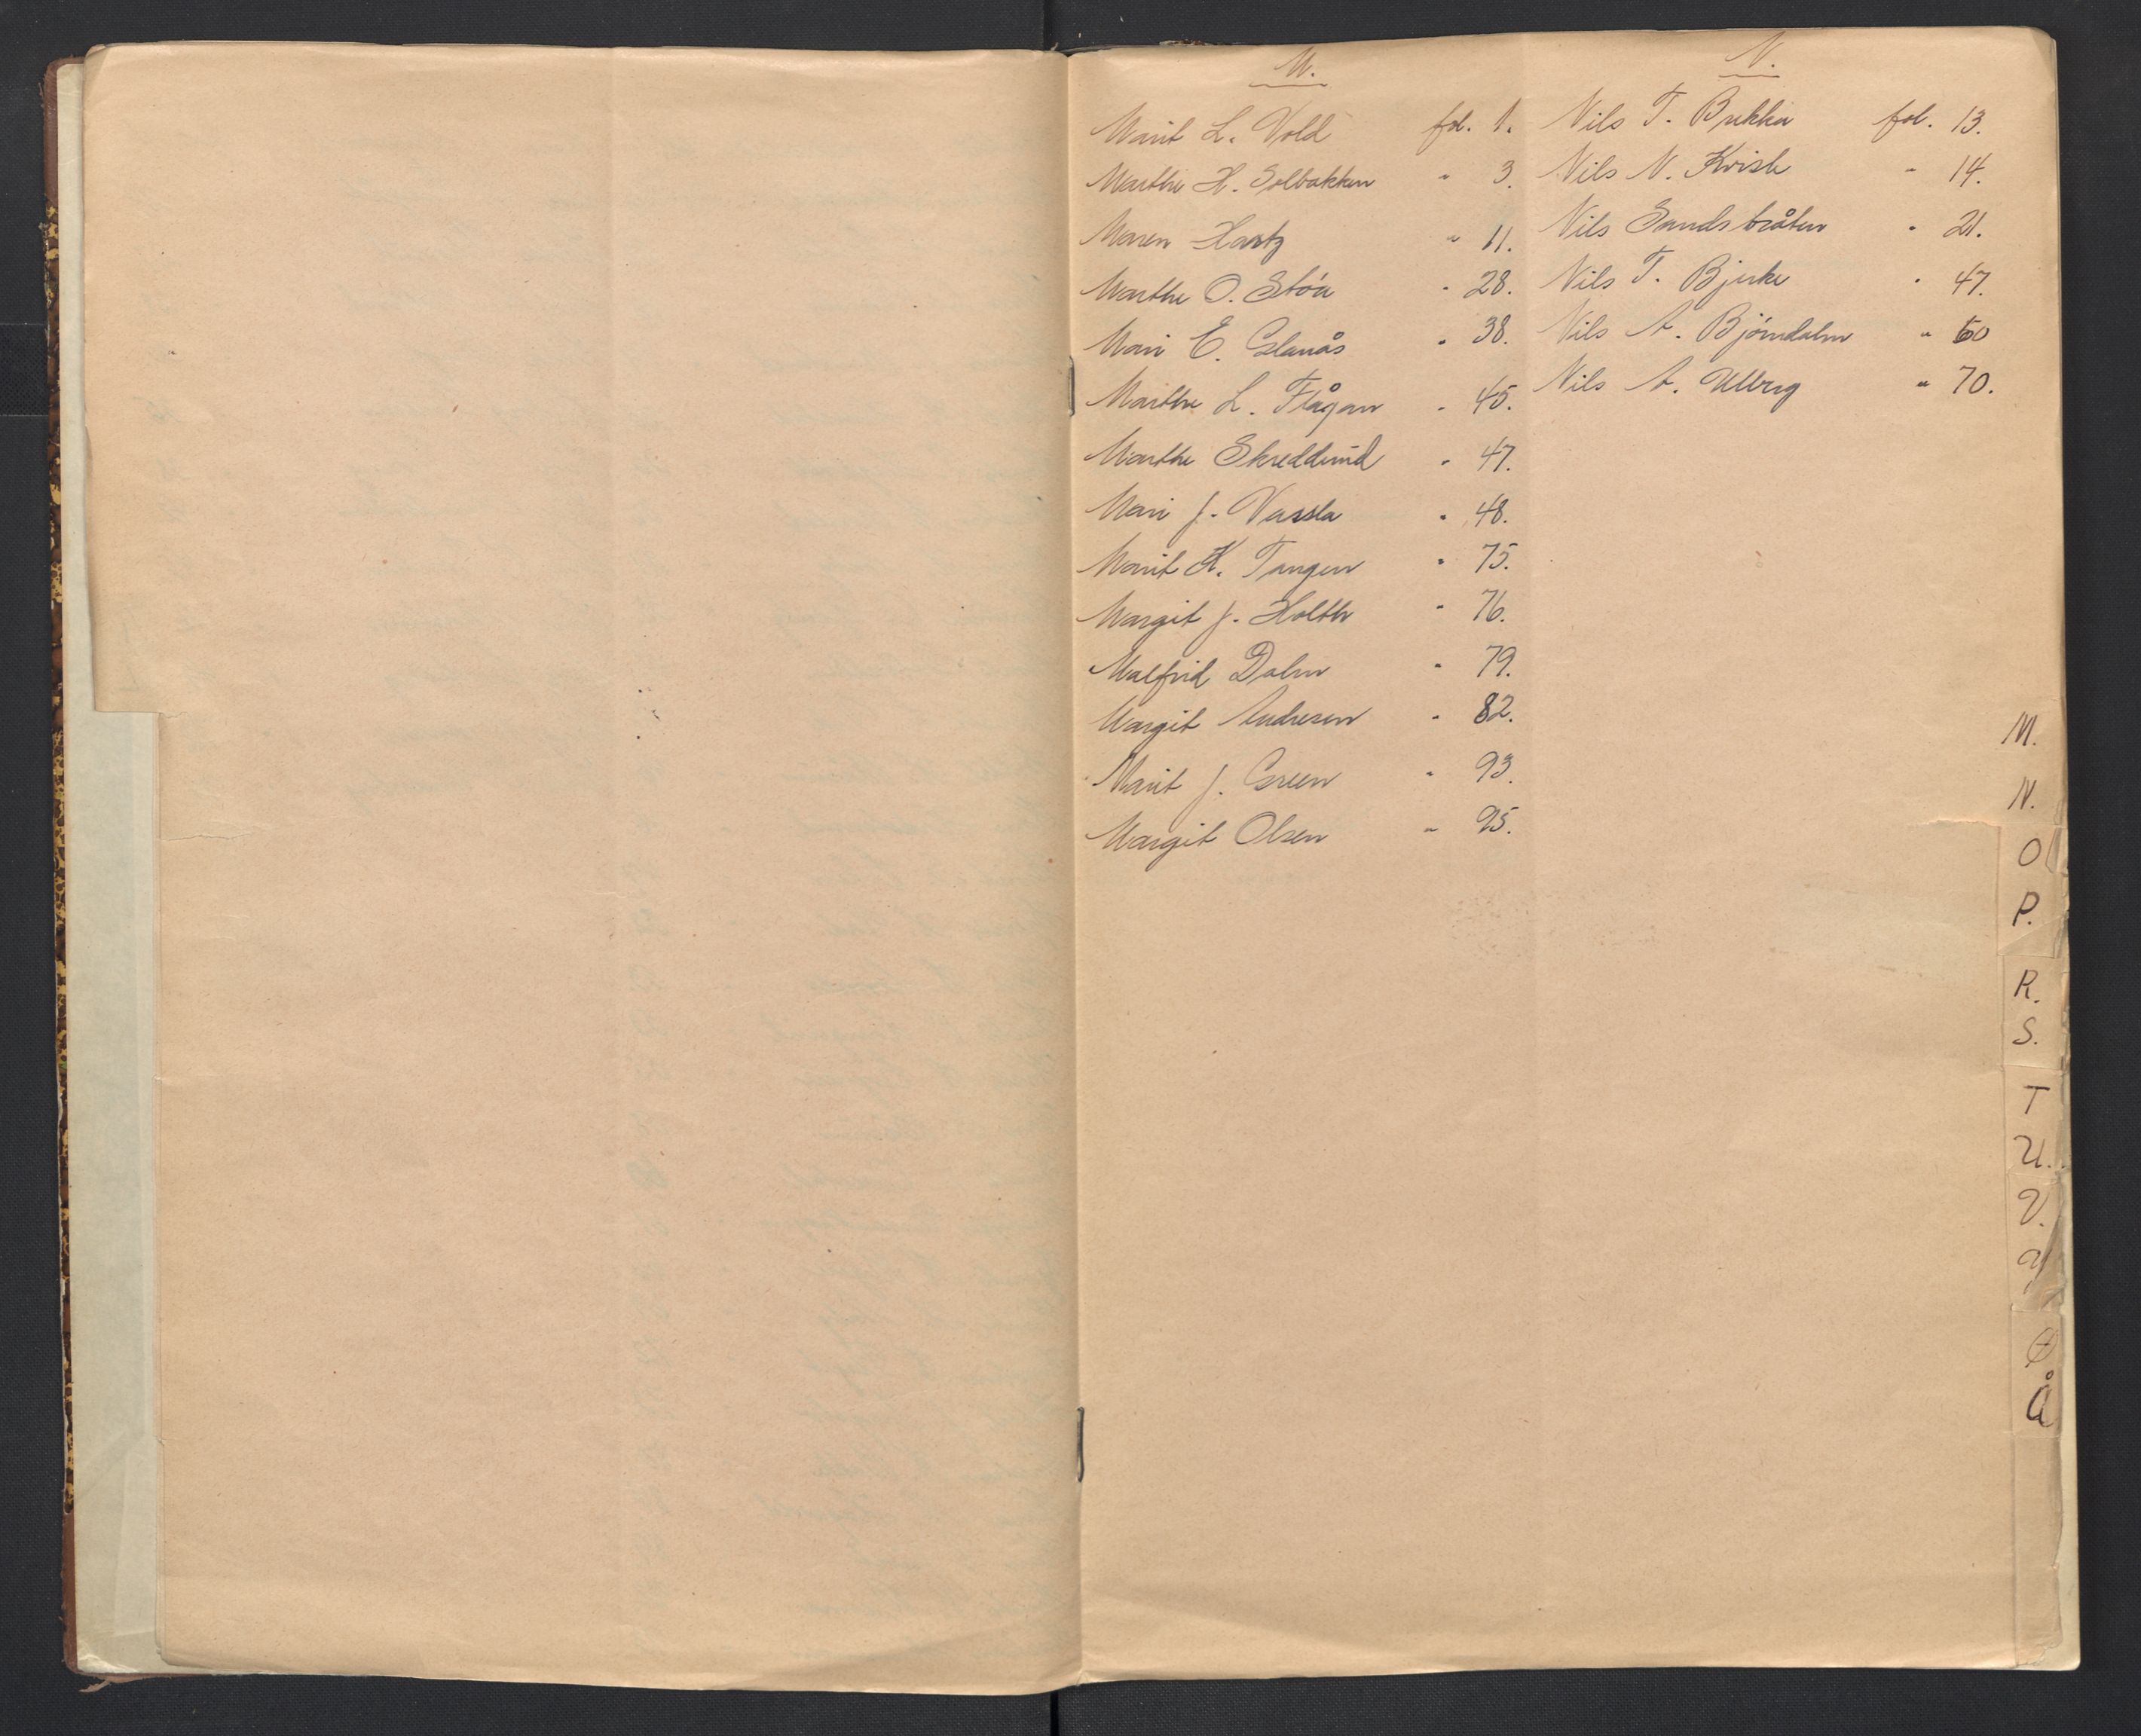 M.
Marit L. Vold fol. 1.
Marthe H. Solbakken " 3.
Maren Hartz " 11.
Marthe O. Stöa " 28.
Mari E. Glanås " 38.
Marthe L. Flågan " 45.
Marthe Skredderud " 47.
Mari J. Vassla " 48.
Marit K. Tangen " 75.
Margit J. Holth " 76.
Malfrid Dalen " 79.
Margit Andresen " 82.
Marit J. Green " 93.
Margit Olsen " 95.
N.
Nils T. Brekka fol. 13.
Nils N. Kvisle " 14.
Nils Sandsbråten " 21.
Nils T. Bjerke " 47.
Nils A. Björndalen " 60
Nils A. Ulberg " 70.
M.
N.
O
P.
R.
S.
T
U.
V.
Y
Ø
Å